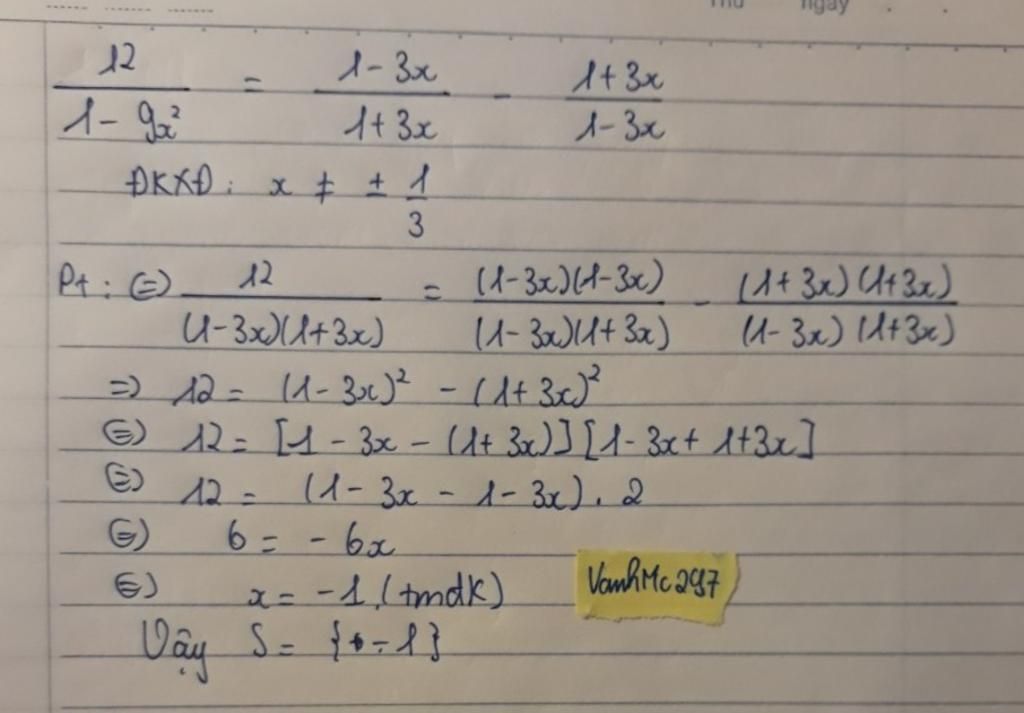 Thứ ngày
12/(1 - 9x²) = (1 - 3x)/(1 + 3x) - (1 + 3x)/(1 - 3x)
ĐKXĐ: x ≠ ± 1/3
Pt: ⇔ 12/((1-3x)(1+3x)) = ((1-3x)(1-3x))/((1-3x)(1+3x)) - ((1+3x)(1+3x))/((1-3x)(1+3x))
=> 12 = (1-3x)² - (1+3x)²
⇔ 12 = [1 - 3x - (1+3x)][1-3x + 1+3x]
⇔ 12 = (1 - 3x - 1 - 3x) . 2
⇔ 6 = - 6x
⇔ x = -1 (tmdk)
VanhMc297
Vậy S = {-1}